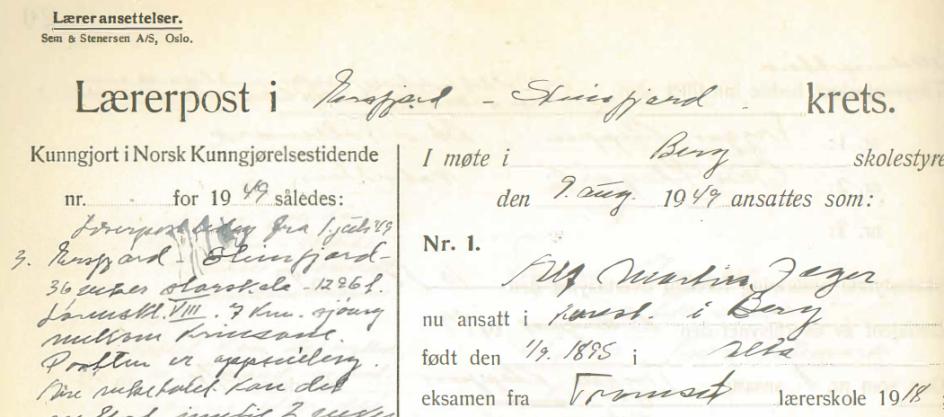 Læreransettelser.
Sem & Stenersen A/S, Oslo.
Lærerpost i Ersfjord - Steinsfjord krets.
Kunngjort i Norsk Kunngjørelsestidende
nr. for 1949 således:
Lærerpost ledig fra 1 juli 49
3. Ersfjord - Steinsfjord -
36 veker storskule - 1296 t.
lønnskl. VIII. 7 km. sjøveg
mellom krinsane.
Posten er
kan det
2
I møte i Berg skolestyre
den 9. aug. 1949 ansattes som:
Nr. 1.
Alf Martin Jæger
nu ansatt i konst. i Berg
født den 1/9. 1895 i Alta
eksamen fra Tromsø lærerskole 1918